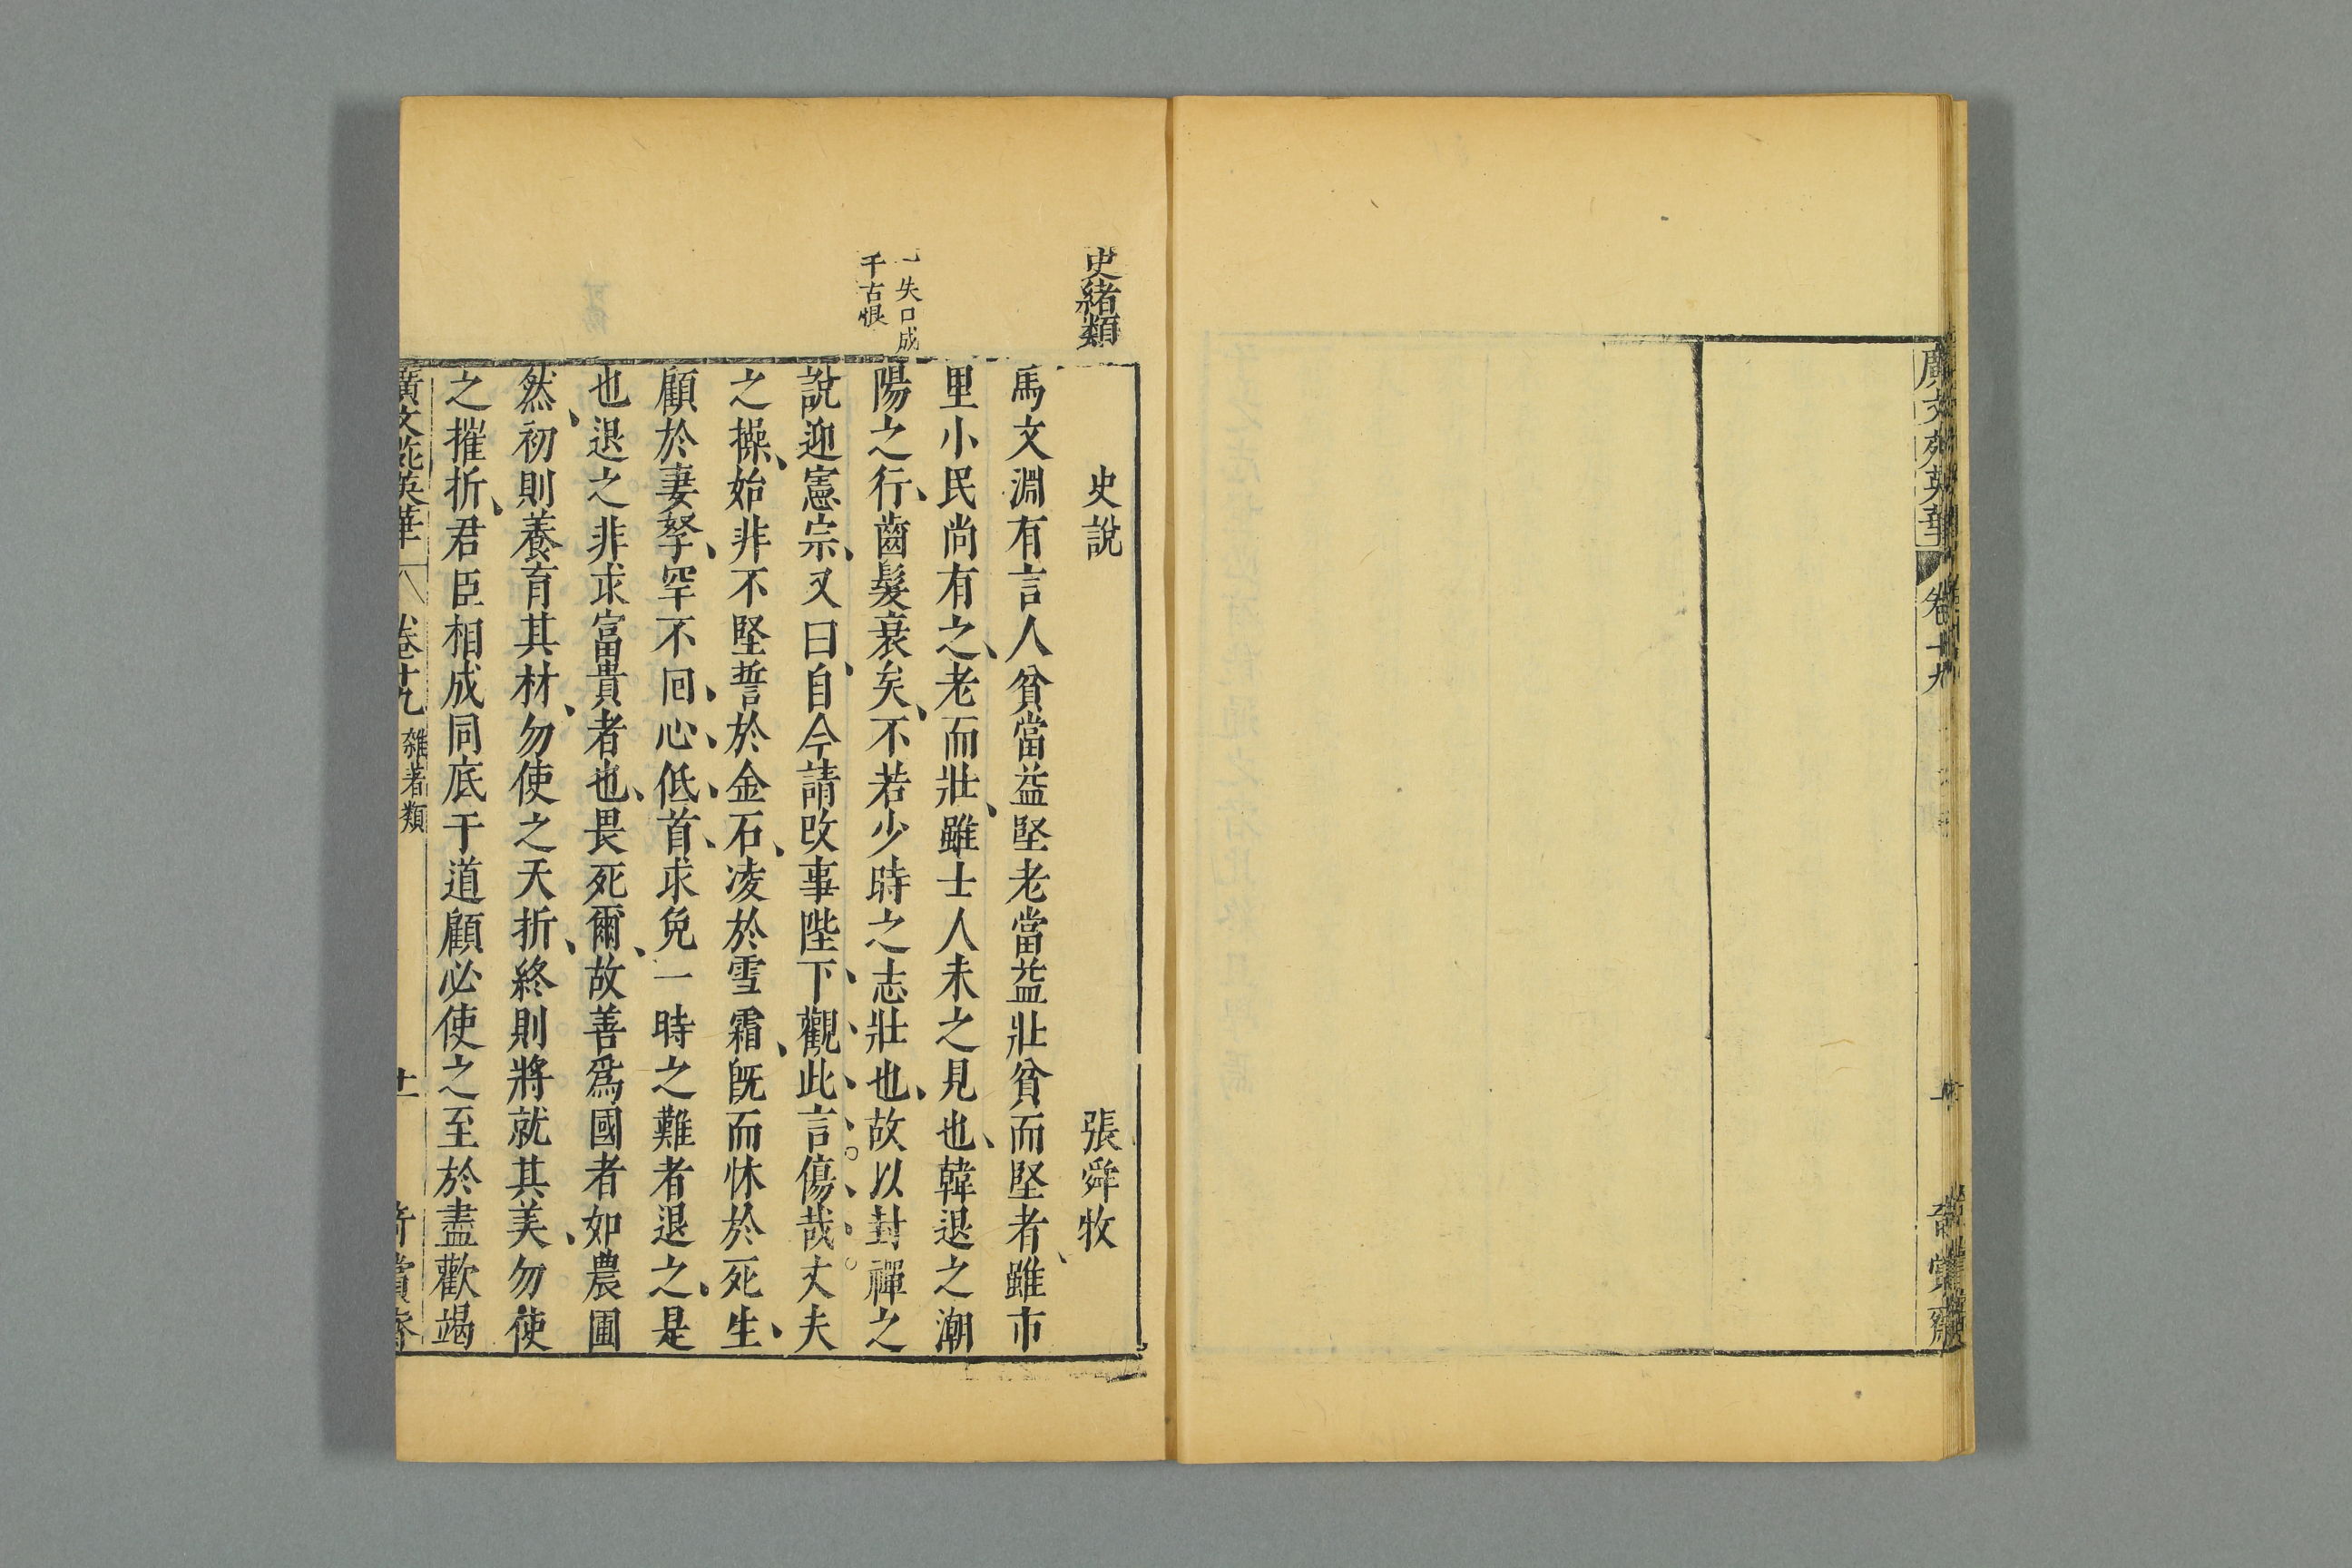 廣文苑英華
卷十九
奇賞齋
史緒類
史說　張舜牧
馬文淵有言人貧當益堅老當益壯貧而堅者雖市
里小民尚有之老而壯雖士人未之見也韓退之潮
一失口成
千古恨
陽之行齒髮衰矣不若少時之志壯也故以封禪之
說迎憲宗又曰自今請改事陛下觀此言傷哉丈夫
之操始非不堅誓於金石凌於雪霜旣而怵於死生
顧於妻孥罕不回心低首求免一時之難者退之是
也退之非求富貴者也畏死爾故善爲國者如農圃
然初則養育其材勿使之夭折終則將就其美勿使
之摧折君臣相成同底于道顧必使之至於盡歡竭
廣文苑英華
卷十九
雜著類
十一
奇賞齋